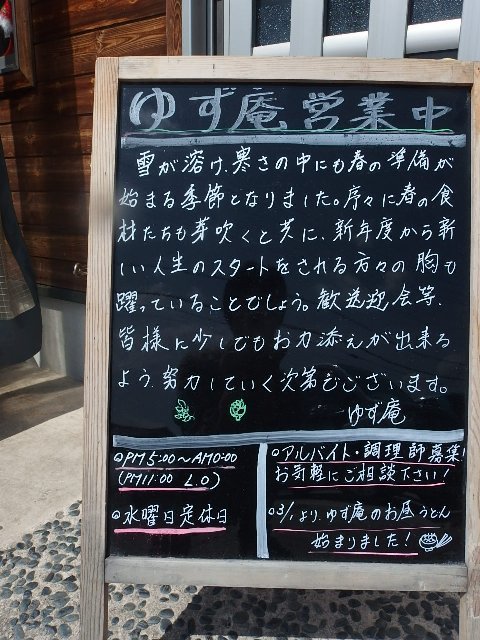 ゆず庵営業中
雪が溶け、寒さの中にも春の準備が
始まる季節となりました。序々に春の食
材たちも芽吹くと共に、新年度から新
しい人生のスタートをされる方々の胸も
躍っていることでしょう。歓送迎会等、
皆様に少しでもお力添えが出来る
よう、努力していく次第でございます。
ゆず庵
○PM5:00〜AM0:00
(PM11:00 L.O)
○水曜日定休日
○アルバイト・調理師募集!
お気軽にご相談下さい!
○3/1より、ゆず庵のお昼うどん
始まりました!